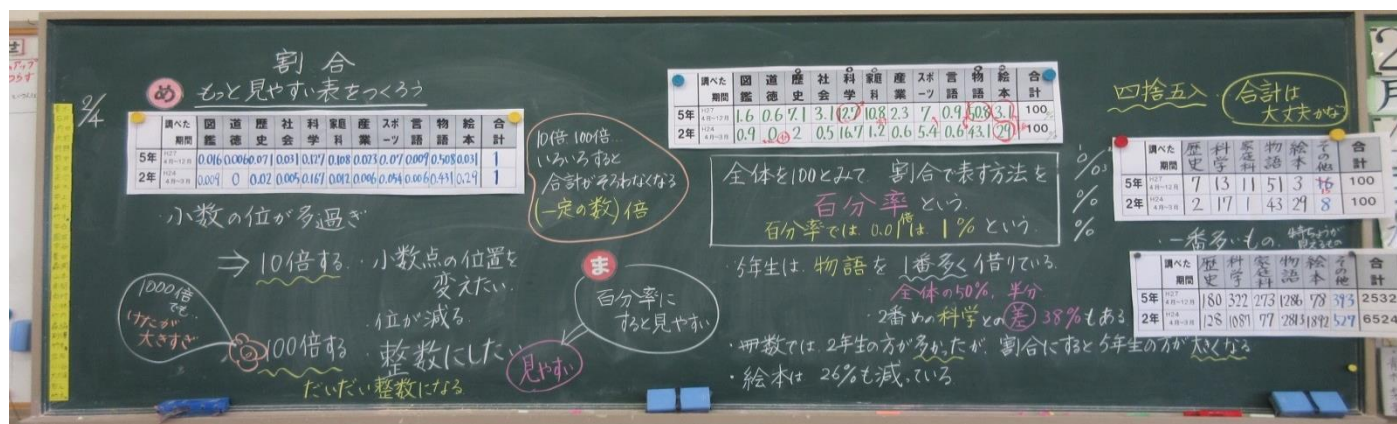 2/4
割合
め もっと見やすい表をつくろう
調べた期間 図鑑 道徳 歴史 社会 科学 家庭科 産業 スポーツ 言語 物語 絵本 合計
5年 H27 4月~12月 0.016 0.006 0.071 0.031 0.127 0.108 0.023 0.07 0.009 0.508 0.031 1
2年 H24 4月~3月 0.009 0 0.02 0.005 0.167 0.012 0.006 0.054 0.006 0.431 0.29 1
・小数の位が多過ぎ
⇒10倍する ・小数点の位置を
変えたい
・位が減る
1000倍
でも、
けたが
大きすぎ
100倍する ・整数にしたい
だいだい整数になる
10倍、100倍…
いろいろすると
合計がそろわなくなる
(一定の数)倍
ま
百分率に
すると見やすい
見やすい
調べた期間 図鑑 道徳 歴史 社会 科学 家庭科 産業 スポーツ 言語 物語 絵本 合計
5年 H27 4月~12月 1.6 0.6 7.1 3.1 12.7 10.8 2.3 7 0.9 50.8 3.1 100
2年 H24 4月~3月 0.9 0 2 0.5 16.7 1.2 0.6 5.4 0.6 43.1 29 100
全体を100とみて 割合で表す方法を
百分率という。
百分率では 0.01倍は 1%という。
%
%
・5年生は、物語を1番多く借りている。
全体の50%、半分
・2番めの科学との差38%もある
・冊数では、2年生の方が多かったが、割合にすると5年生の方が大きくなる
・絵本は 26%も減っている
四捨五入
合計は
大丈夫かな
調べた期間 歴史 科学 家庭科 物語 絵本 その他 合計
5年 H27 4月~12月 7 13 11 51 3 100
2年 H24 4月~3月 2 17 1 43 29 8 100
・一番多いもの、特ちょうが
見えるもの
調べた期間 歴史 科学 家庭科 物語 絵本 その他 合計
5年 H27 4月~12月 180 322 273 1286 78 393 2532
2年 H24 4月~3月 128 1087 77 2813 1892 527 6524
2月